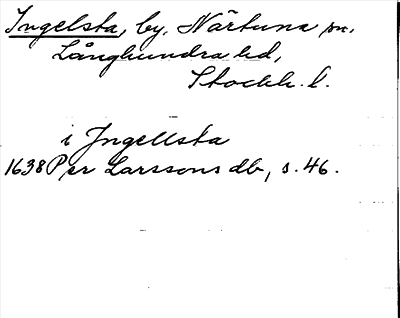 Ingelsta, by, Närtuna sn.
Långhundra hd,
Stockh. l.
i Jngellsta
1638 Per Larssons db, s. 46.